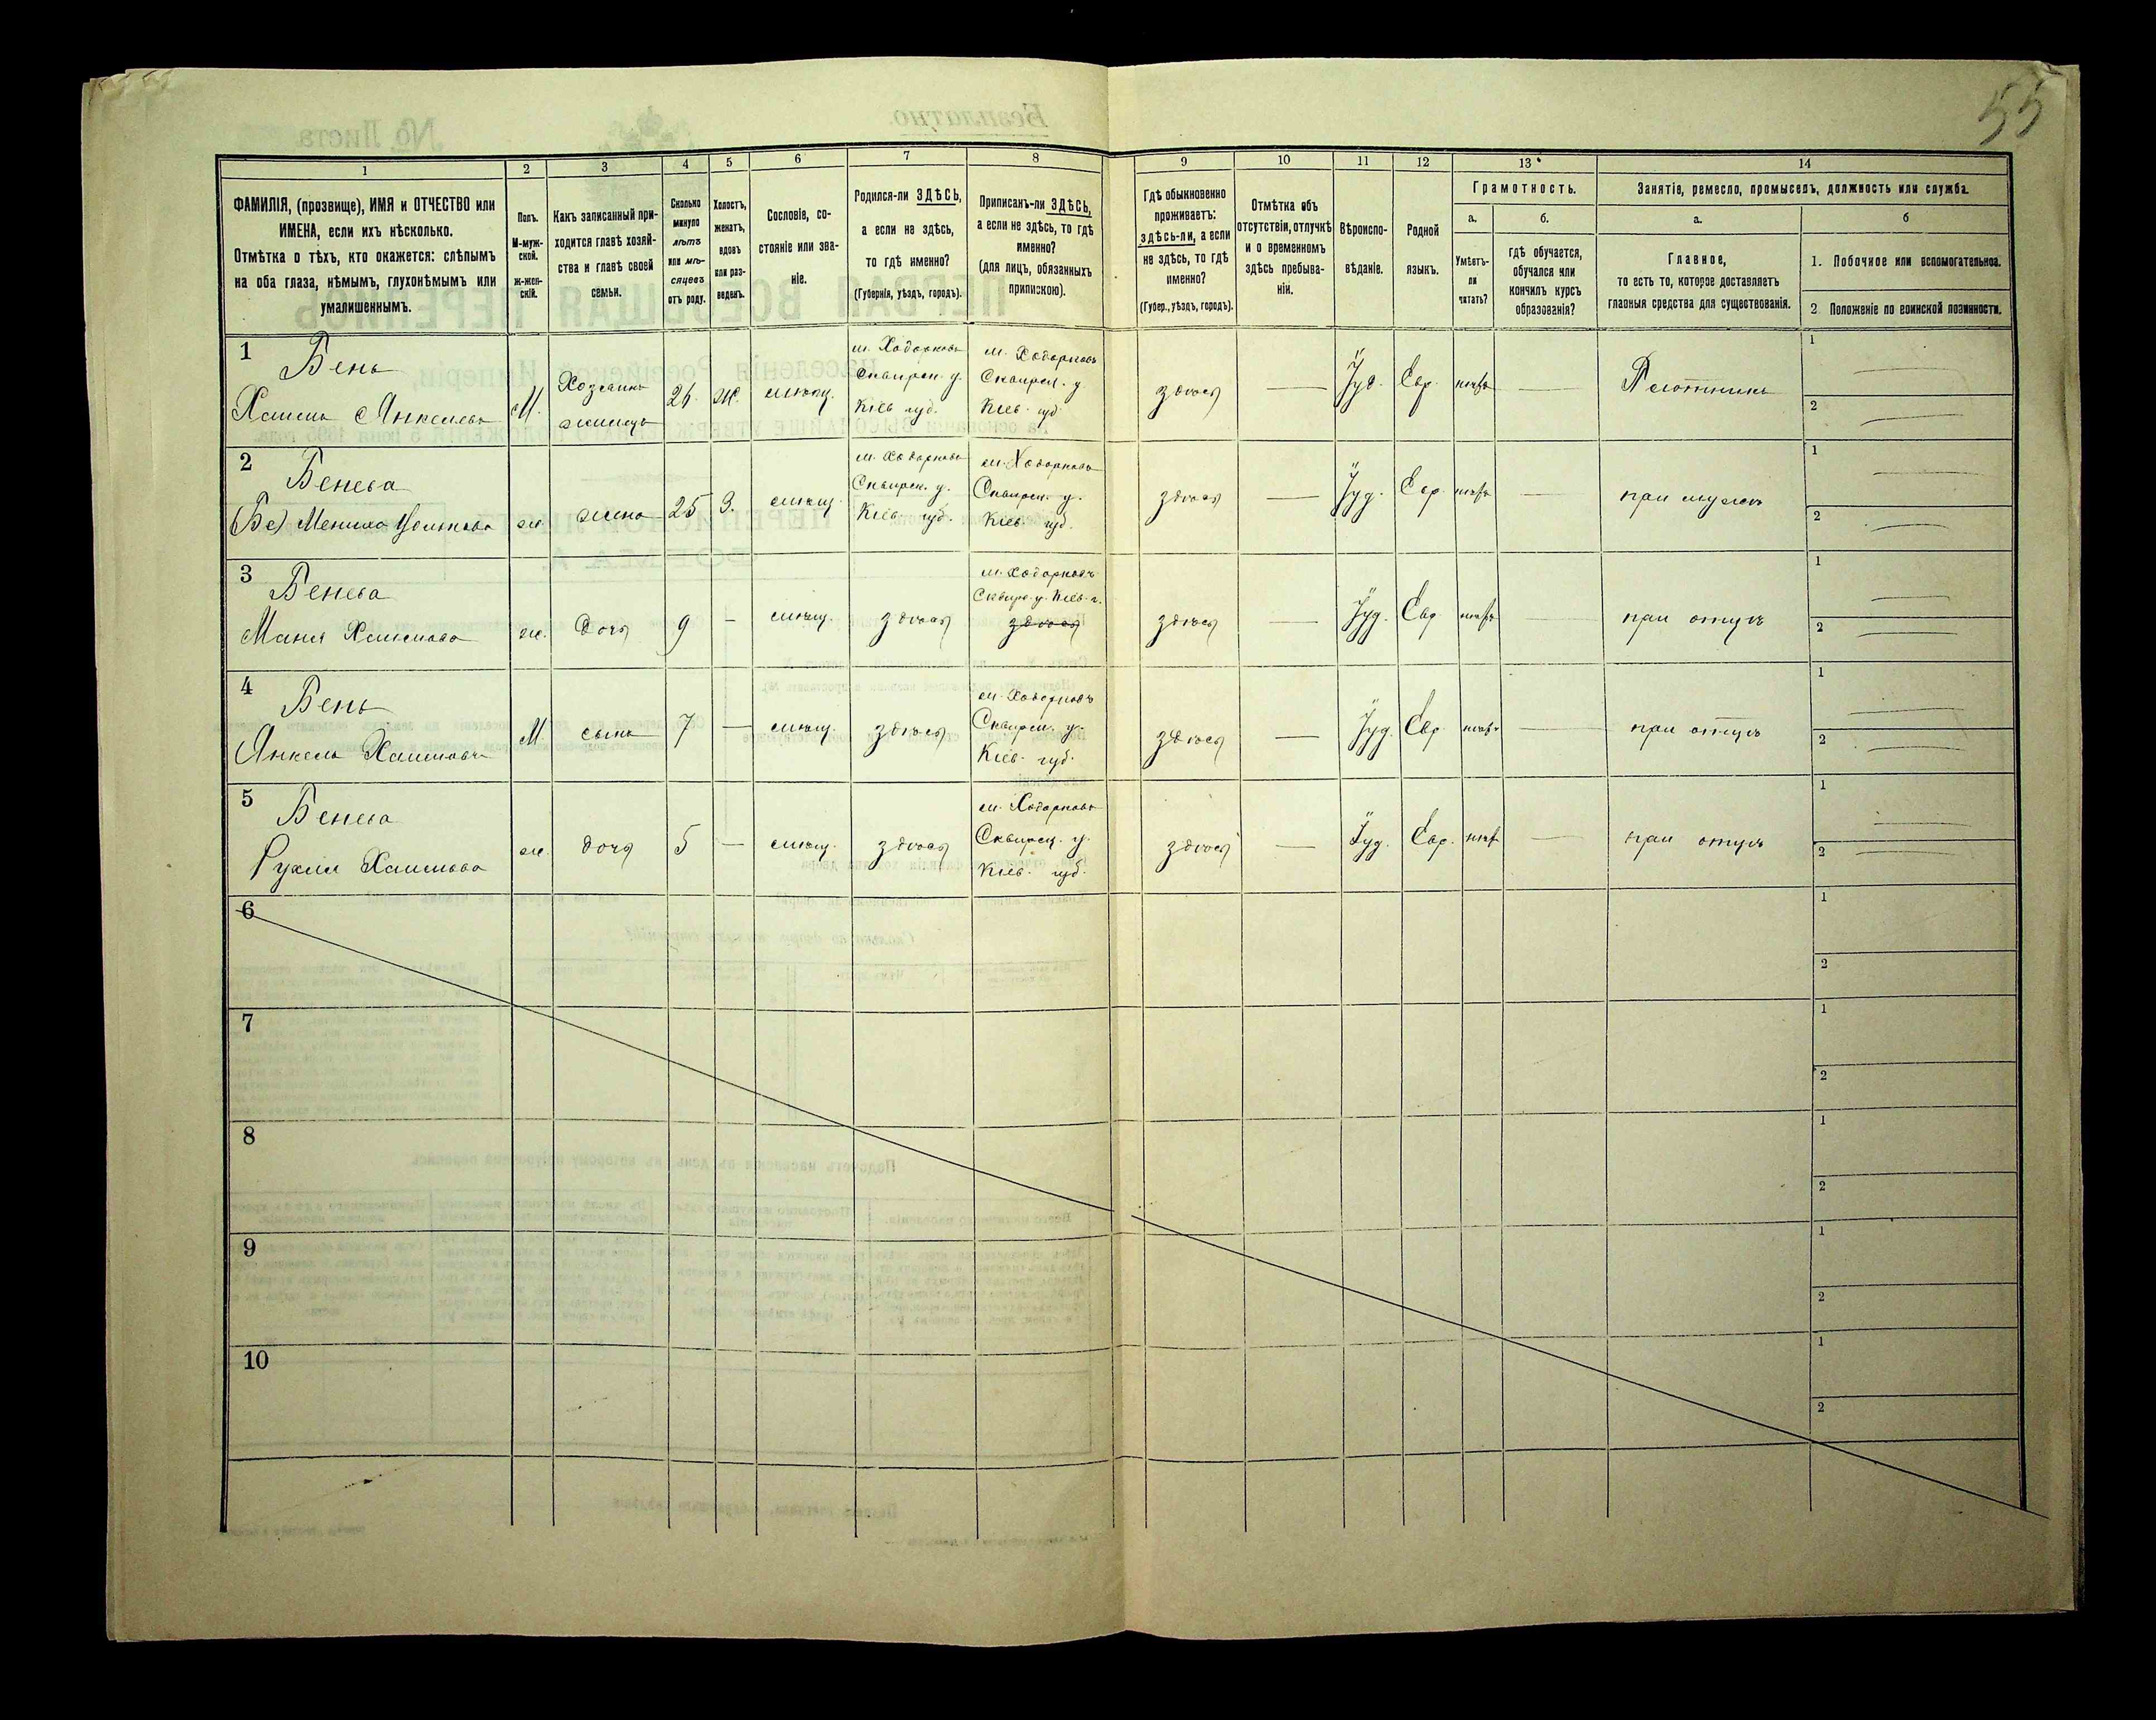 55
1 2 3 4 5 6 7 8 9 10 11 12 13 14
ФАМИЛІЯ, (прозвище), ИМЯ и ОТЧЕСТВО или
ИМЕНА, если ихъ нѣсколько.
Отмѣтка о тѣхъ, кто окажется: слѣпымъ
на оба глаза, нѣмымъ, глухонѣмымъ или
умалишеннымъ.
Полъ.
М-муж-
ской.
ж-жен-
скій.
Какъ записанный при-
ходится главѣ хозяй-
ства и главѣ своей
семьи.
Сколько
минуло
лѣтъ
или мѣ-
сяцевъ
отъ роду.
Холостъ,
женатъ,
вдовъ
или раз-
веденъ.
Сословіе, со-
стояніе или зва-
ніе.
Родился-ли ЗДѢСЬ,
а если не здѣсь,
то гдѣ именно?
(Губернія, уѣздъ, городъ).
Приписанъ-ли ЗДѢСЬ,
а если не здѣсь, то гдѣ
именно?
(для лицъ, обязанныхъ
припискою).
Гдѣ обыкновенно
проживаетъ:
здѣсь-ли, а если
не здѣсь, то гдѣ
именно?
(Губер., уѣздъ, городъ).
Отмѣтка объ
отсутствіи, отлучкѣ
и о временномъ
здѣсь пребыва-
ніи.
Вѣроиспо-
вѣданіе.
Родной
языкъ.
Грамотность.
а.
Умѣетъ-
ли
читать?
б.
гдѣ обучается,
обучался или
кончилъ курсъ
образованія?
Занятіе, ремесло, промыселъ, должность или служба.
а.
Главное,
то есть то, которое доставляетъ
главныя средства для существованія.
б
1. Побочное или вспомогательное.
2 Положеніе по воинской повинности.
1
Бень
Хаимъ Янкелевъ
М.
Хозяинъ
жилецъ
ж.
мѣщ.
м. Ходорковъ
Сквирск. у.
Кіев губ.
м. Ходорковъ
Сквирск. у
Кіев. губ
здѣсь
Іуд.
Евр.
Плотникъ
1
2
2
Бенева
ж.
жена
25
З.
мѣщ.
м. Ходорковъ
Сквирск. у.
Кіев. губ.
м. Ходорковъ
Сквирск. у.
Кіев. губ.
здѣсь
Іуд.
Евр.
при мужѣ
1
2
3
Бенева
Маня Хаимова
ж.
дочь
9
мѣщ.
здѣсь
м. Ходорковъ
Сквирс. у. Кіев. г.
здѣсь
здѣсь
Іуд.
Евр
при отцѣ
1
2
4
Бень
Янкель Хаимовъ
М.
сынъ
7
мѣщ.
здѣсь
м. Ходорковъ
Сквирск. у.
Кіев. губ.
здѣсь
Іуд.
Евр
при отцѣ
1
2
5
Бенева
Рухля Хаимова
ж.
дочь
5
мѣщ.
здѣсь
м. Ходорковъ
Сквирск. у.
Кіев. губ.
здѣсь
Іуд.
Евр.
при отцѣ
1
2
6
1
2
7
1
2
8
1
2
9
1
2
10
1
2